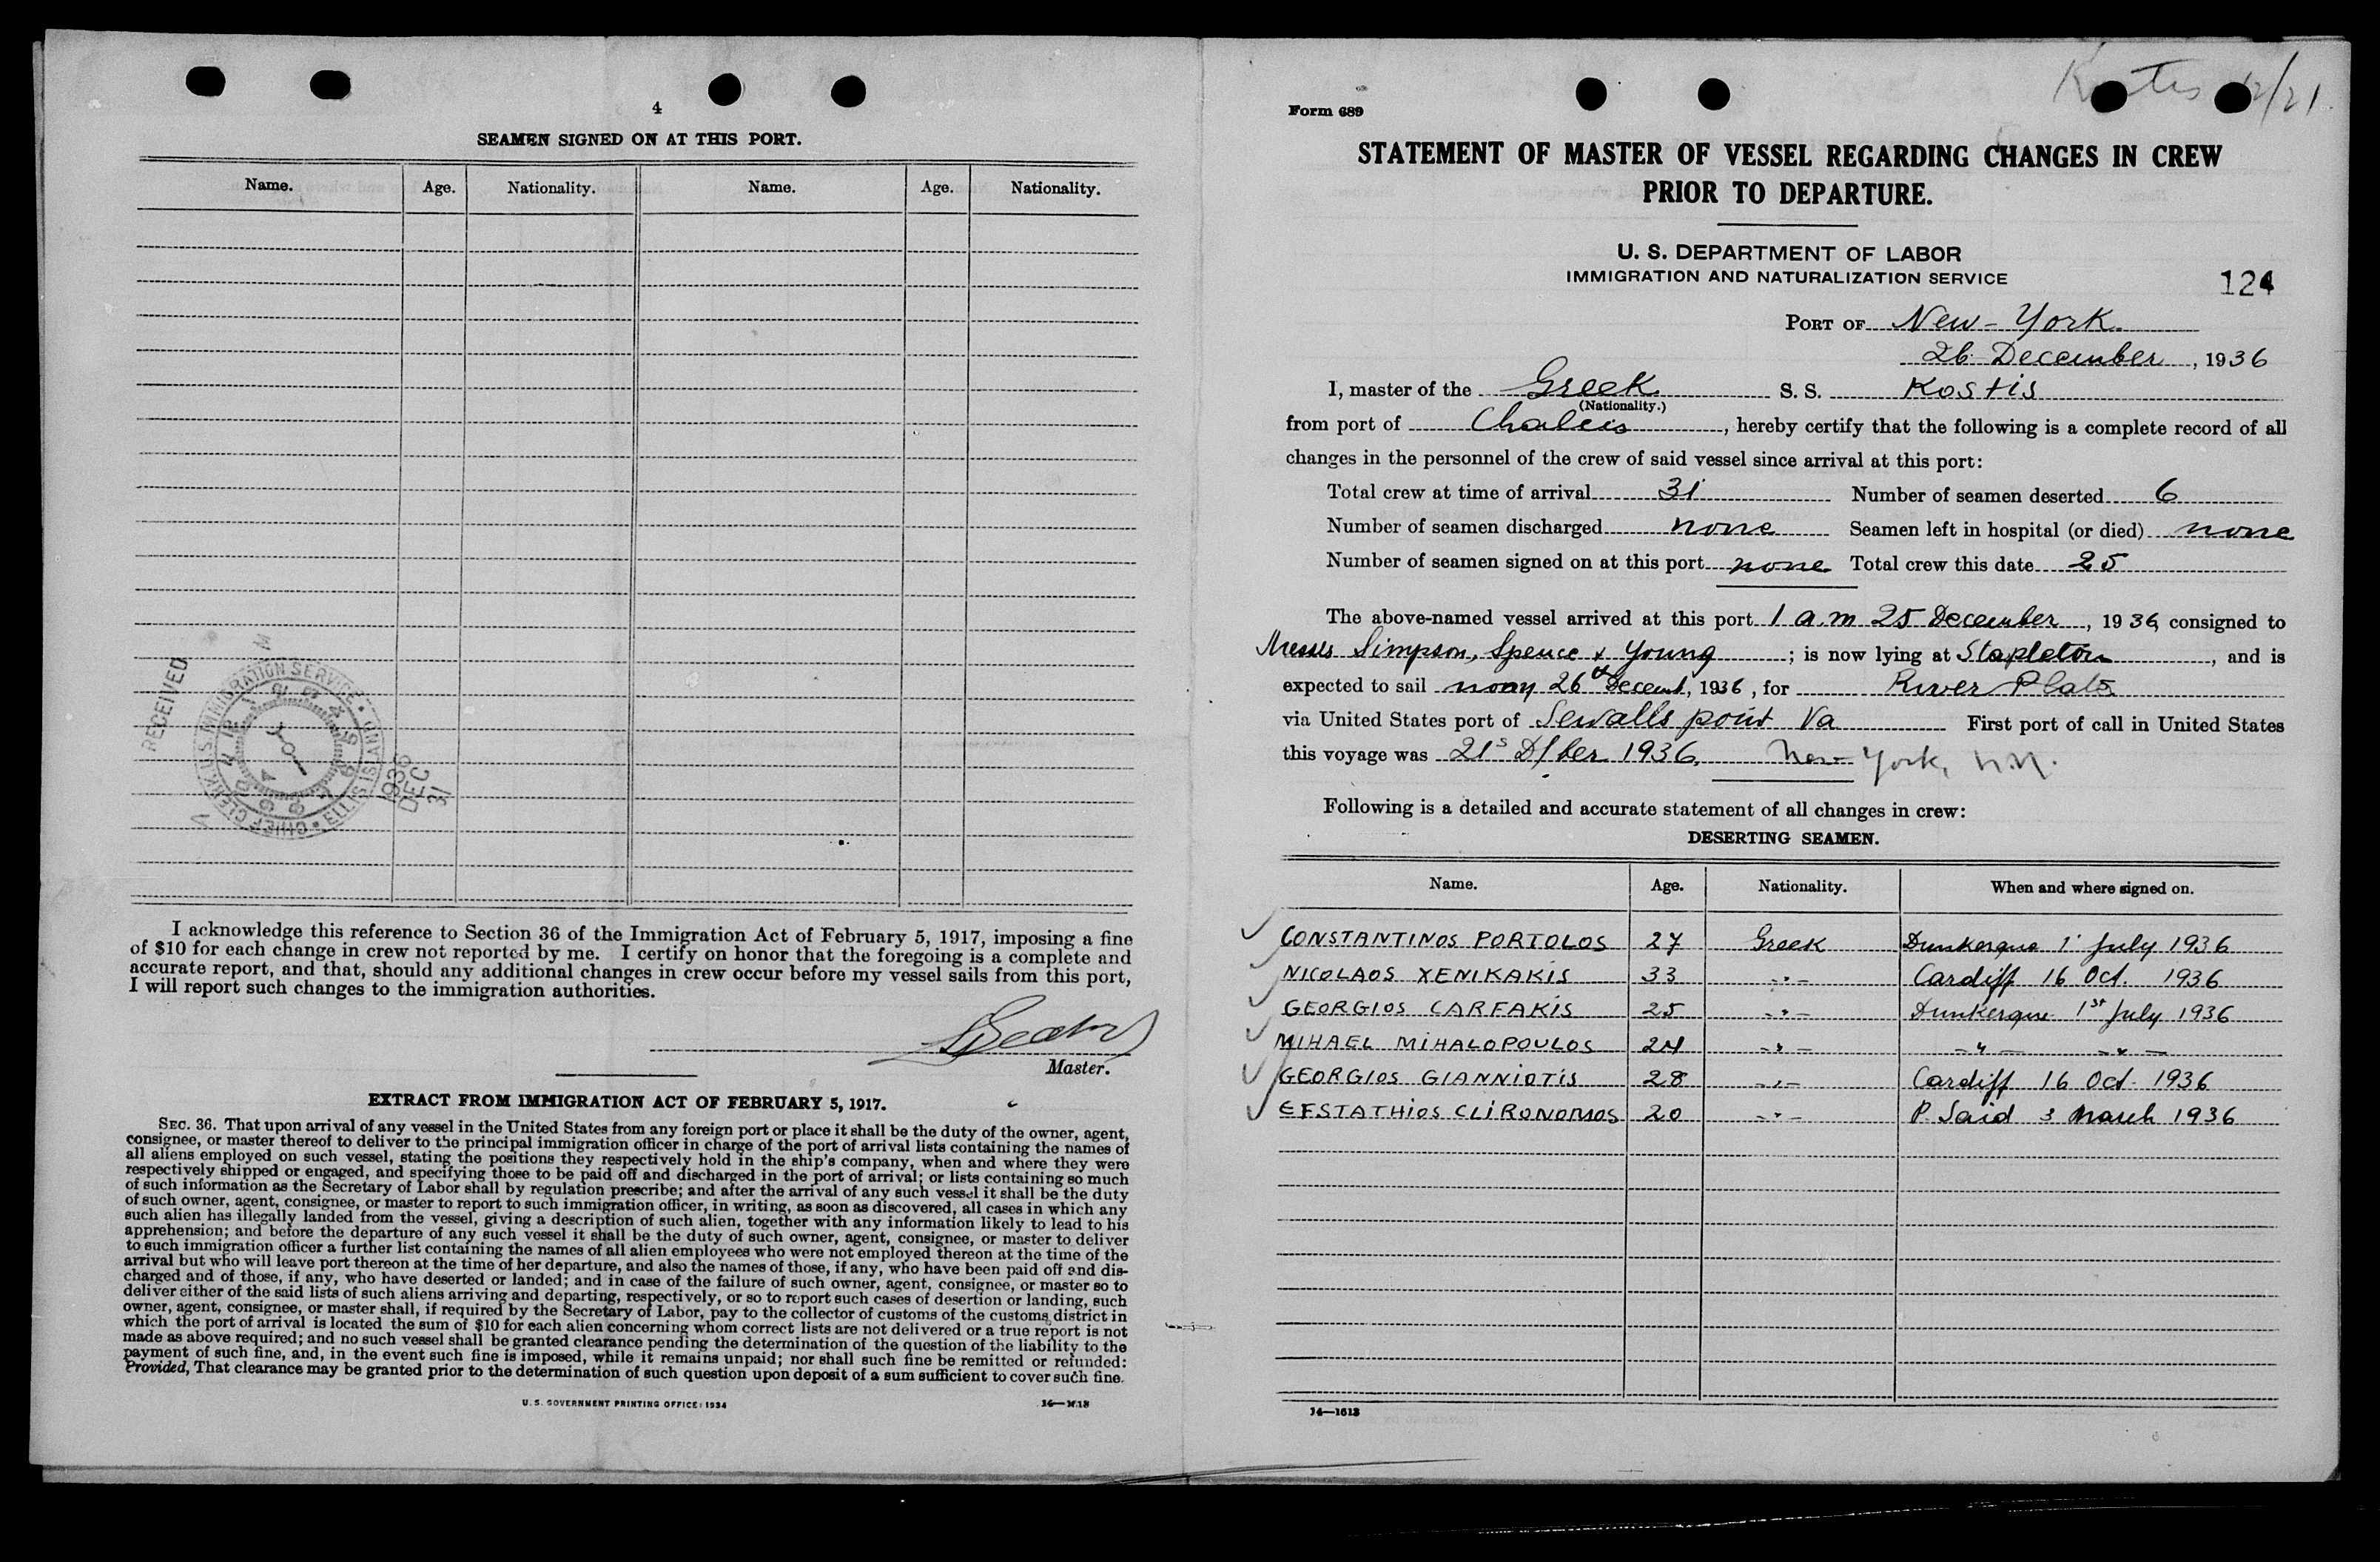 4
SEAMEN SIGNED ON AT THIS PORT.
Name. Age. Nationality. Name. Age. Nationality.
RECEIVED
CHIEF CLERK U.S. IMMIGRATION SERVICE • ELLIS ISLAND •
1936
DEC
31
I acknowledge this reference to Section 36 of the Immigration Act of February 5, 1917, imposing a fine
of $10 for each change in crew not reported by me. I certify on honor that the foregoing is a complete and
accurate report, and that, should any additional changes in crew occur before my vessel sails from this port,
I will report such changes to the immigration authorities.
Master.
EXTRACT FROM IMMIGRATION ACT OF FEBRUARY 5, 1917.
SEC. 36. That upon arrival of any vessel in the United States from any foreign port or place it shall be the duty of the owner, agent,
consignee, or master thereof to deliver to the principal immigration officer in charge of the port of arrival lists containing the names of
all aliens employed on such vessel, stating the positions they respectively hold in the ship's company, when and where they were
respectively shipped or engaged, and specifying those to be paid off and discharged in the port of arrival; or lists containing so much
of such information as the Secretary of Labor shall by regulation prescribe; and after the arrival of any such vessel it shall be the duty
of such owner, agent, consignee, or master to report to such immigration officer, in writing, as soon as discovered, all cases in which any
such alien has illegally landed from the vessel, giving a description of such alien, together with any information likely to lead to his
apprehension; and before the departure of any such vessel it shall be the duty of such owner, agent, consignee, or master to deliver
to such immigration officer a further list containing the names of all alien employees who were not employed thereon at the time of the
arrival but who will leave port thereon at the time of her departure, and also the names of those, if any, who have been paid off and dis-
charged and of those, if any, who have deserted or landed; and in case of the failure of such owner, agent, consignee, or master so to
deliver either of the said lists of such aliens arriving and departing, respectively, or so to report such cases of desertion or landing, such
owner, agent, consignee, or master shall, if required by the Secretary of Labor, pay to the collector of customs of the customs district in
which the port of arrival is located the sum of $10 for each alien concerning whom correct lists are not delivered or a true report is not
made as above required; and no such vessel shall be granted clearance pending the determination of the question of the liability to the
payment of such fine, and, in the event such fine is imposed, while it remains unpaid; nor shall such fine be remitted or refunded:
Provided, That clearance may be granted prior to the determination of such question upon deposit of a sum sufficient to cover such fine.
U. S. GOVERNMENT PRINTING OFFICE: 1934
12/21
Form 689
STATEMENT OF MASTER OF VESSEL REGARDING CHANGES IN CREW
PRIOR TO DEPARTURE.
U. S. DEPARTMENT OF LABOR
IMMIGRATION AND NATURALIZATION SERVICE
124
PORT OF New-York
26 December, 1936
I, master of the Greek S. S. Kostis
(Nationality.)
from port of Chalcis, hereby certify that the following is a complete record of all
changes in the personnel of the crew of said vessel since arrival at this port:
Total crew at time of arrival 31 Number of seamen deserted 6
Number of seamen discharged none Seamen left in hospital (or died) none
Number of seamen signed on at this port none Total crew this date 25
The above-named vessel arrived at this port 1 a.m 25 December, 1936, consigned to
Messrs Simpson, Spence & Young; is now lying at Stapleton, and is
expected to sail 26th Decemb, 1936, for River Plate
via United States port of Sewalls point Va First port of call in United States
this voyage was 21s D/ber 1936, New York, N.Y.
Following is a detailed and accurate statement of all changes in crew:
DESERTING SEAMEN.
Name. Age. Nationality. When and where signed on.
CONSTANTINOS PORTOLOS 27 Greek Dunkerque 1 July 1936
NICOLAOS XENIKAKIS 33 -"- Cardiff 16 Oct. 1936
GEORGIOS CARFAKIS 25 -"- Dunkerque 1st July 1936
MIHAEL MIHALOPOULOS 24 -"- -"- -"-
GEORGIOS GIANNIOTIS 28 -"- Cardiff 16 Oct. 1936
EFSTATHIOS CLIRONOMOS 20 -"- P. Said 3 March 1936
14—1613